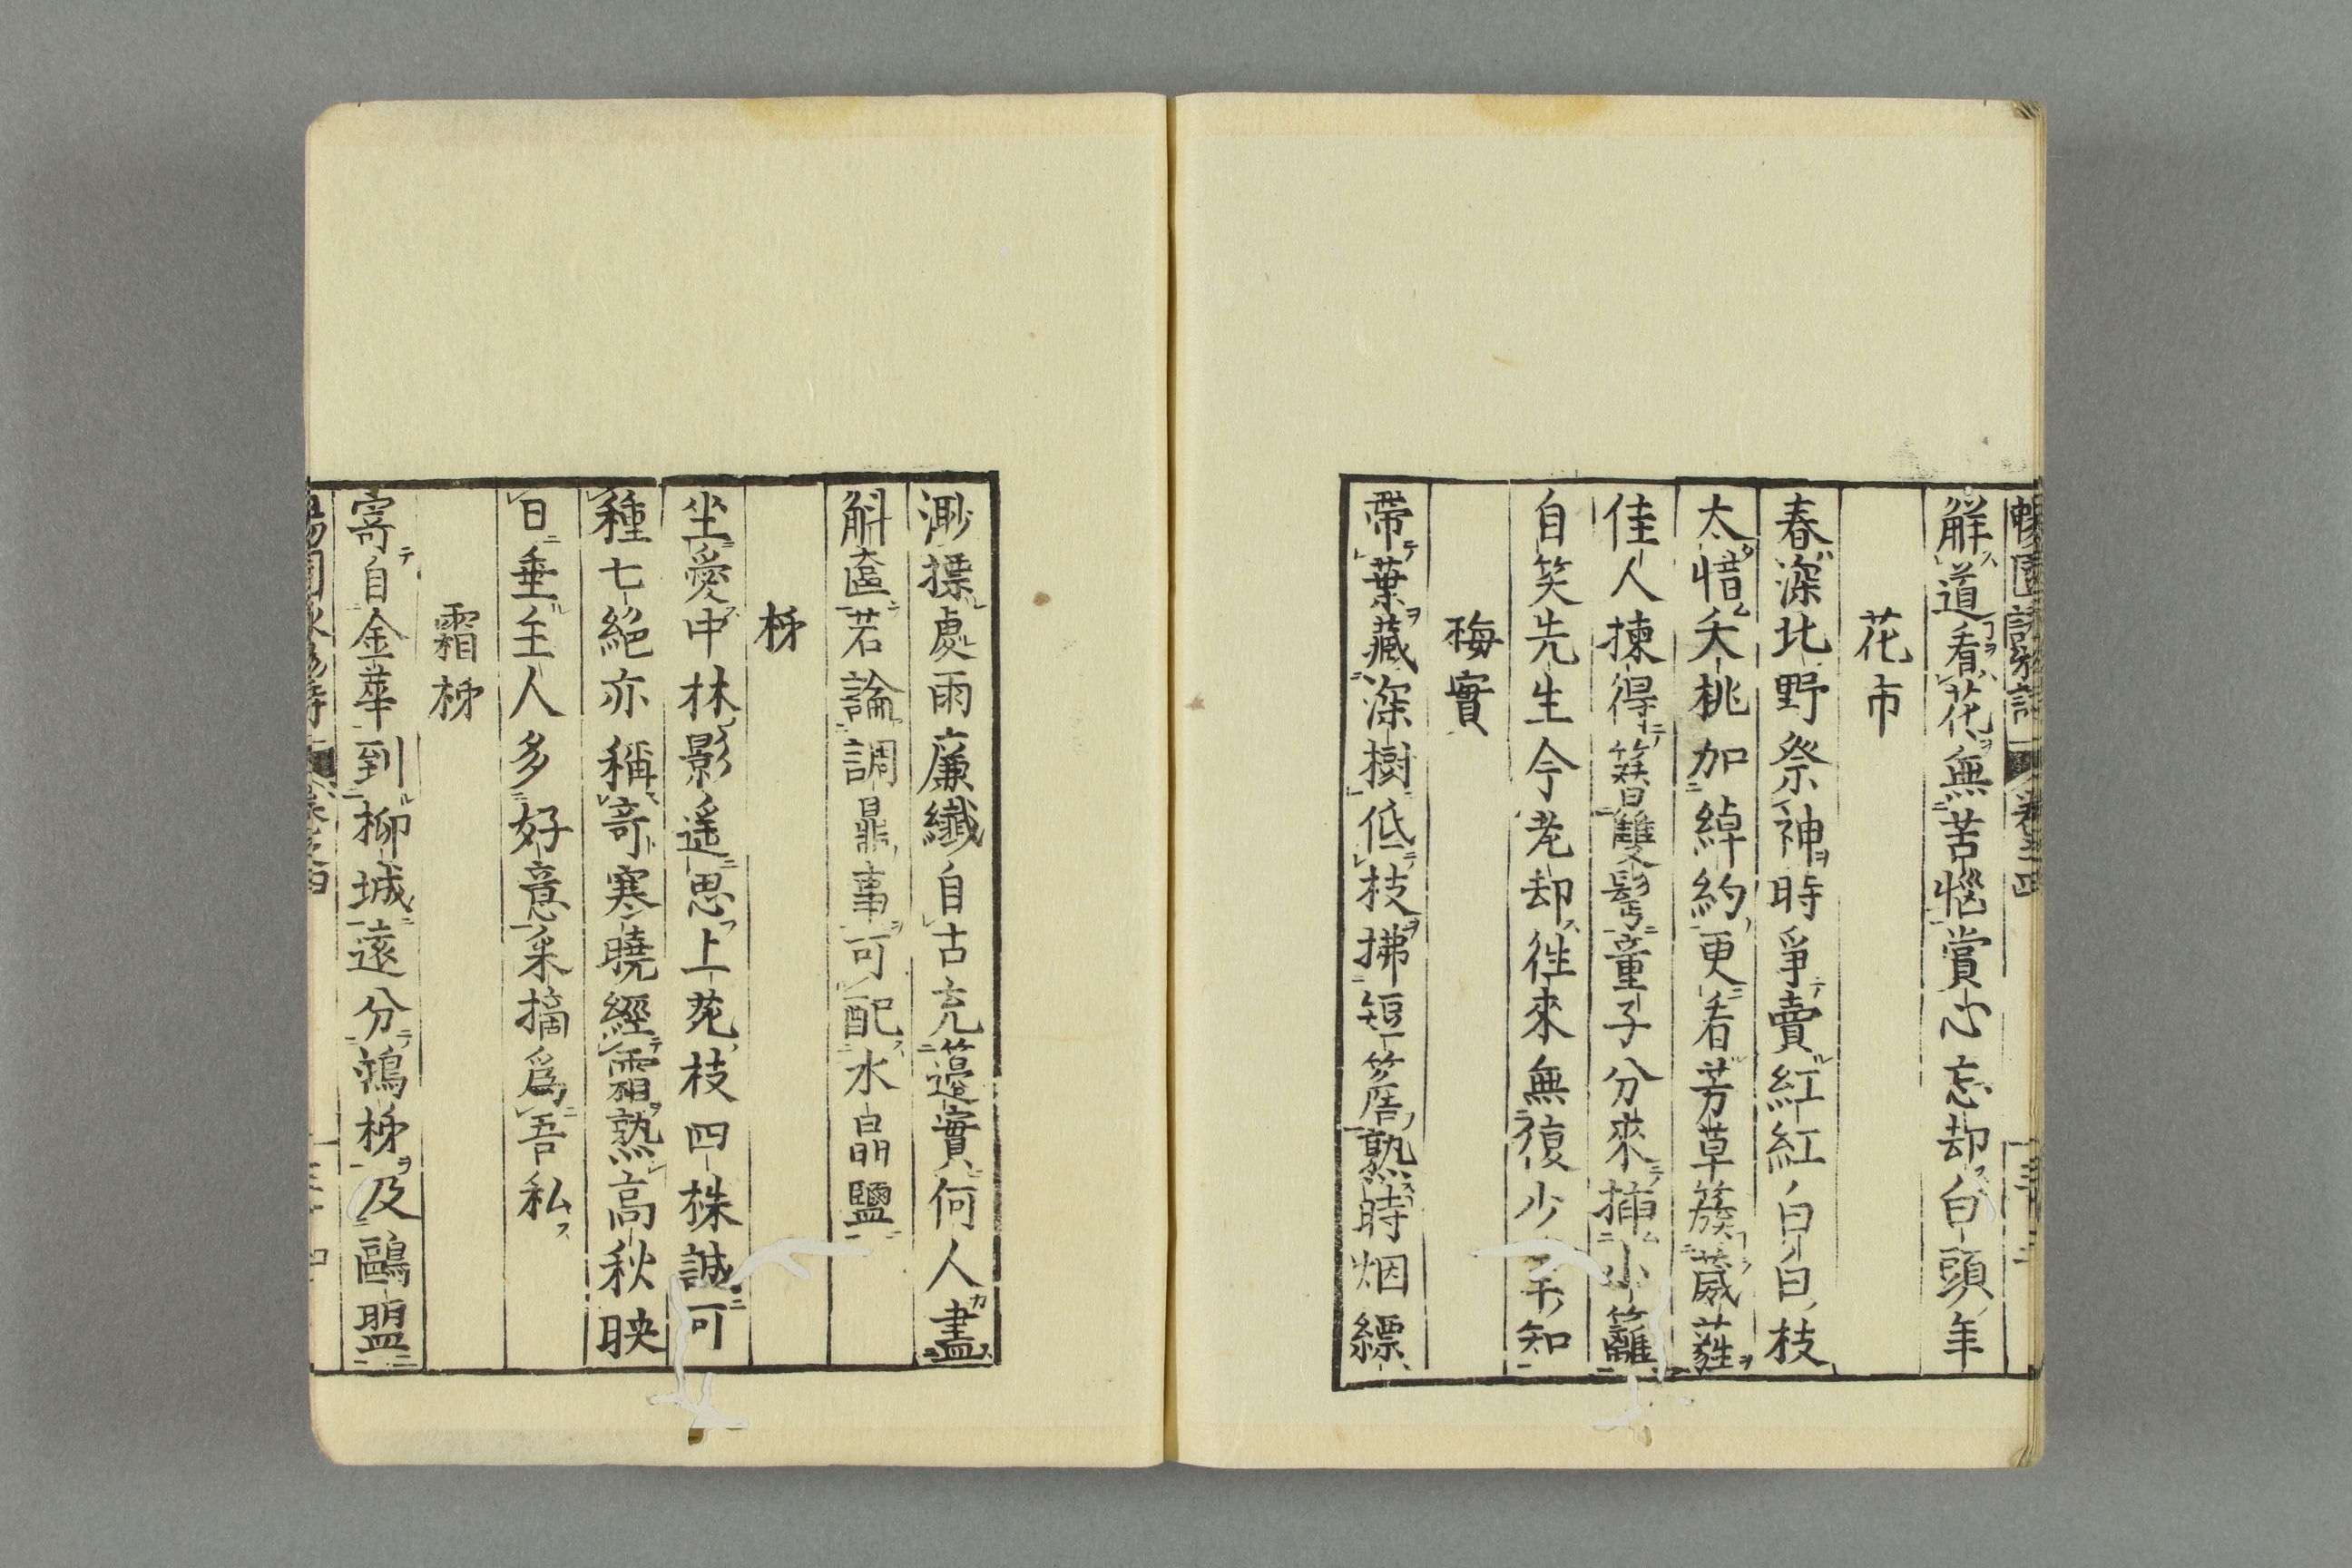 解道看花無苦惱賞心忘却白頭年
花市
春深北野祭神時爭賣紅紅白白枝
太惜夭桃加綽約更看芳草簇葳蕤
佳人揀得簪雙髩童子分來插小籬
自笑先生今老却徃來無復少年知
梅實
帶葉藏深樹低枝拂短簷熟時烟縹
渺摽處雨廉纖自古充籩實何人盡
斛奩若論調鼎事可配水晶鹽
柹
坐愛中林影遥思上苑枝四株誠可
種七絕亦稱奇寒曉經霜熟高秋映
日垂主人多好意采摘爲吾私
霜柹
寄自金華到柳城遠分鴻柹及鷗盟